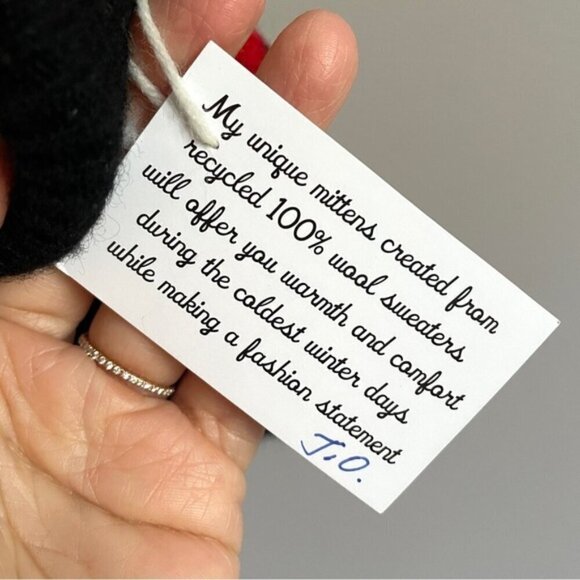 My unique mittens created from
recycled 100% wool sweaters
will offer you warmth and comfort
during the coldest winter days
while making a fashion statement
J.O.